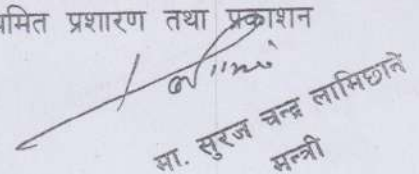 यमित प्रशारण तथा प्रकाशन
मा. सुरज चन्द्र लामिछाने
मन्त्री